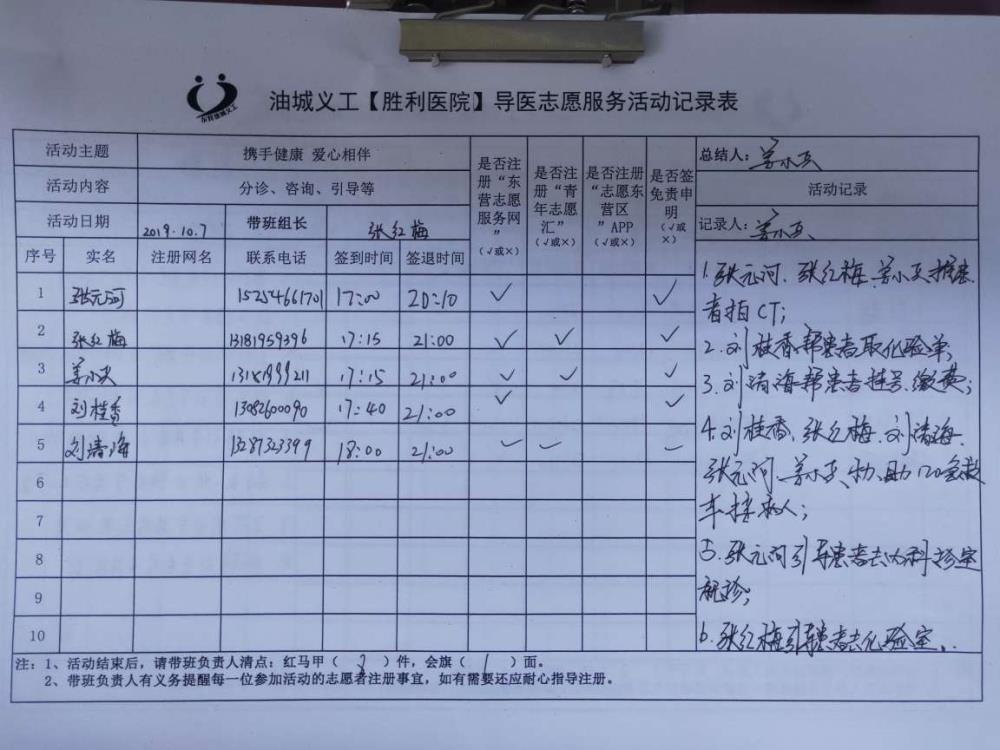 油城义工【胜利医院】导医志愿服务活动记录表
活动主题 携手健康 爱心相伴
活动内容 分诊、咨询、引导等
活动日期 2019.10.7 带班组长 张红梅
是否注册“东营志愿服务网”（√或×）
是否注册“青年志愿汇”（√或×）
是否注册“志愿东营区”APP（√或×）
是否签免责申明（√或×）
总结人：
活动记录
记录人：
序号 实名 注册网名 联系电话 签到时间 签退时间
1 张元河 15254661701 17:00 20:10 √ √
2 张红梅 13181959396 17:15 21:00 √ √ √
3 17:15 21:00 √ √ √
4 刘桂香 13082600090 17:40 21:00 √ √
5 刘清海 13287323399 18:00 21:00 √ √ √
6
7
8
9
10
1.张元河、张红梅、
者拍CT；
2.刘桂香帮患者取化验单；
3.刘清海帮患者挂号、缴费；
4.刘桂香、张红梅、刘清海、
张元河、协助120急救
车接病人；
5.张元河引导患者去内科诊室
就诊；
6.张红梅引导患者去化验室。
注：1、活动结束后，请带班负责人清点：红马甲（ ）件，会旗（1）面。
2、带班负责人有义务提醒每一位参加活动的志愿者注册事宜，如有需要还应耐心指导注册。